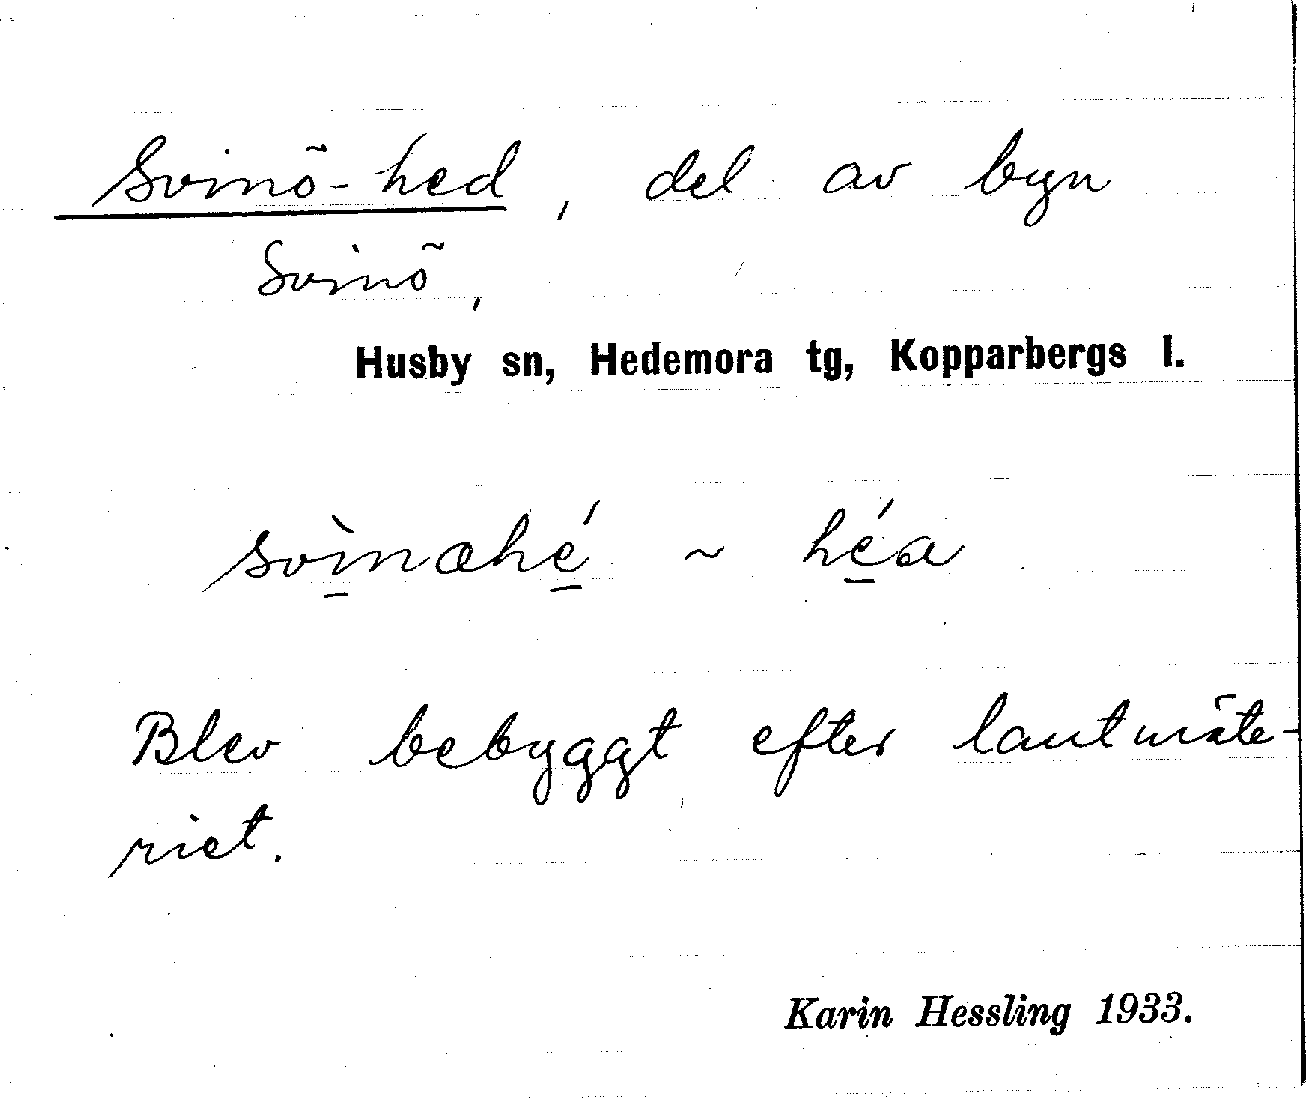 Svinö-hed, del av byn
Svinö,
Husby sn, Hedemora tg, Kopparbergs l.
svì̱næhé̱ ~ hé̱a
Blev bebyggt efter lantmäte-
riet.
Karin Hessling 1933.